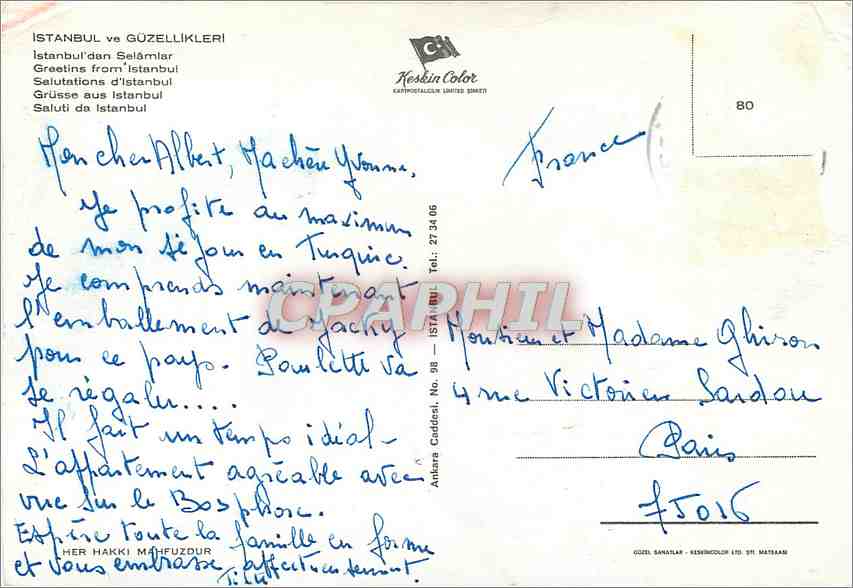 İSTANBUL ve GÜZELLİKLERİ
İstanbul'dan Selâmlar
Greetins from İstanbul
Salutations d'Istanbul
Grüsse aus Istanbul
Saluti da Istanbul
Keskin Color
KARTPOSTALCILIK LIMITED ŞİRKETİ
80
France
Mon cher Albert, Ma chère Yvonne,
Je profite au maximum
de mon séjour en Turquie.
Je comprends maintenant
l'emballement de Jacky
pour ce pays. Paulette va
se régaler....
Il fait un temps idéal-
L'appartement agréable avec
vue sur le Bosphore.
Espère toute la famille en forme
et vous embrasse affectueusement.
HER HAKKI MAHFUZDUR
Ankara Caddesi. No. 98 — İSTANBUL Tel.: 27 34 06
CPAPHIL
Monsieur et Madame Ghiron
4 rue Victorien Sardou
Paris
75016
GÜZEL SANATLAR - KESKİNCOLOR LTD. ŞTİ. MATBAASI